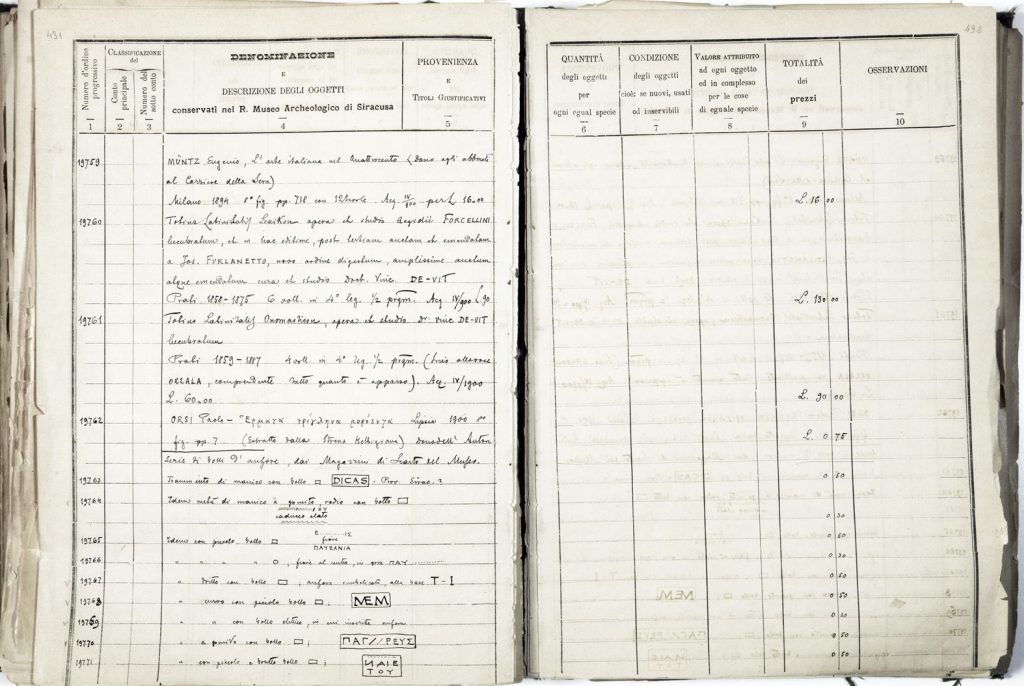 491
Numero d'ordine progressivo
CLASSIFICAZIONE del
Conto principale
Numero del sotto conto
DENOMINAZIONE
E
DESCRIZIONE DEGLI OGGETTI
conservati nel R. Museo Archeologico di Siracusa
PROVENIENZA
E
TITOLI GIUSTIFICATIVI
1 2 3 4 5
19759 MÜNTZ Eugenio, L'arte italiana nel Quattrocento (Dono agli abbonati
al Corriere della Sera)
Milano 1894 8° fig. pp. 718 con tavole. Acq. IV/900 per L 16.00
19760 Totius Latinitatis Lexikon opera et studio Aegidii FORCELLINI
lucubratum, et in hac editione, post tertiam auctam et emendatam
a Jos. FURLANETTO, novo ordine digestum, amplissime auctum
atque emendatum cura et studio Doct. Vinc. DE-VIT
Prati 1858-1875 6 voll. in 4° leg. 1/2 prgm. Acq. IV/900 L. 90
19761 Totius Latinitatis Onomasticon, opera et studio Dr Vinc DE-VIT
lucubratum
Prati 1859-1887 4 voll. in 4° leg. 1/2 prgm. (
OZZALA, comprendente tutto quanto è apparso). Acq. IV/1900
L. 60.00
19762 ORSI Paolo - Ἕρματα τρίγληνα μορόεντα Lipsia 1900 8°
fig. pp. 7. (Estratto dalla Strena Helbigiana) Donò dell' Autore
Serie di bolli d'anfore, dai Magazzini di Scarto del Museo.
19763 Frammento di manico con bollo DICAS. Prov. Sirac. ?
19764 Idem metà di manico a gomito, rodio con bollo
ΙΟΥ
caduceo alato
19765 Idem con piccolo bollo
Ε........ΙΣ
fiore
ΠΑΥΣΑΝΙΑ
19766 " " " " O, fiore al centro, in giro ΠΑΥ
19767 " dritto con bollo , anfore, alla base T-I
19768 " curvo con piccolo bollo ; NEM
19769 " " con bollo ellittico, in cui inscritta anfora
19770 " a gomito con bollo ; ΠΑΓ//ΡΕΥΣ
19771 " con piccolo e bollo ; ΝΑΙΕ
ΤΟΥ
492
QUANTITÀ
degli oggetti
per
ogni egual specie
CONDIZIONE
degli oggetti
cioè: se nuovi, usati
od inservibili
VALORE ATTRIBUITO
ad ogni oggetto
ed in complesso
per le cose
di eguale specie
TOTALITÀ
dei
prezzi
OSSERVAZIONI
6 7 8 9 10
L. 16 00
L. 130 00
L. 90 00
L. 0 75
0 50
0 30
0 50
0 30
0 50
0 50
0 20
0 50
0 50